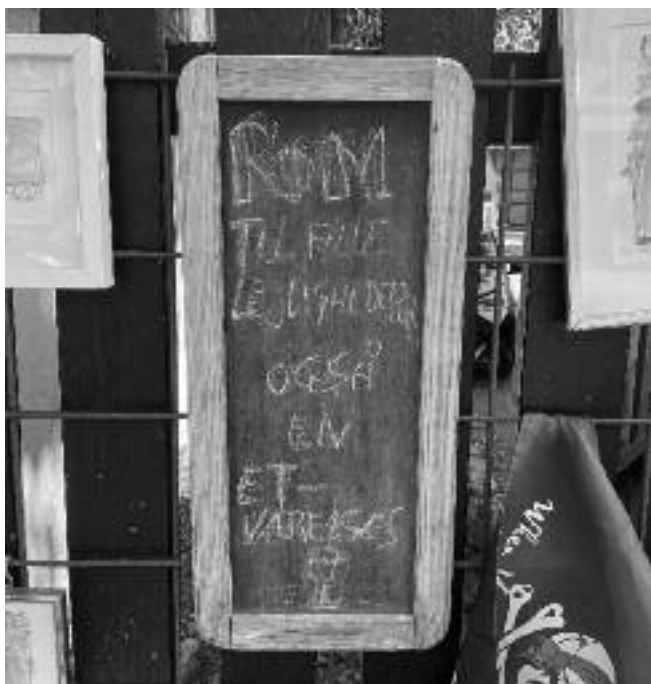 ROM
TIL ALLE
LEJLIGHEDER
OGSÅ
EN
ET-
VÆRELSES
?
When